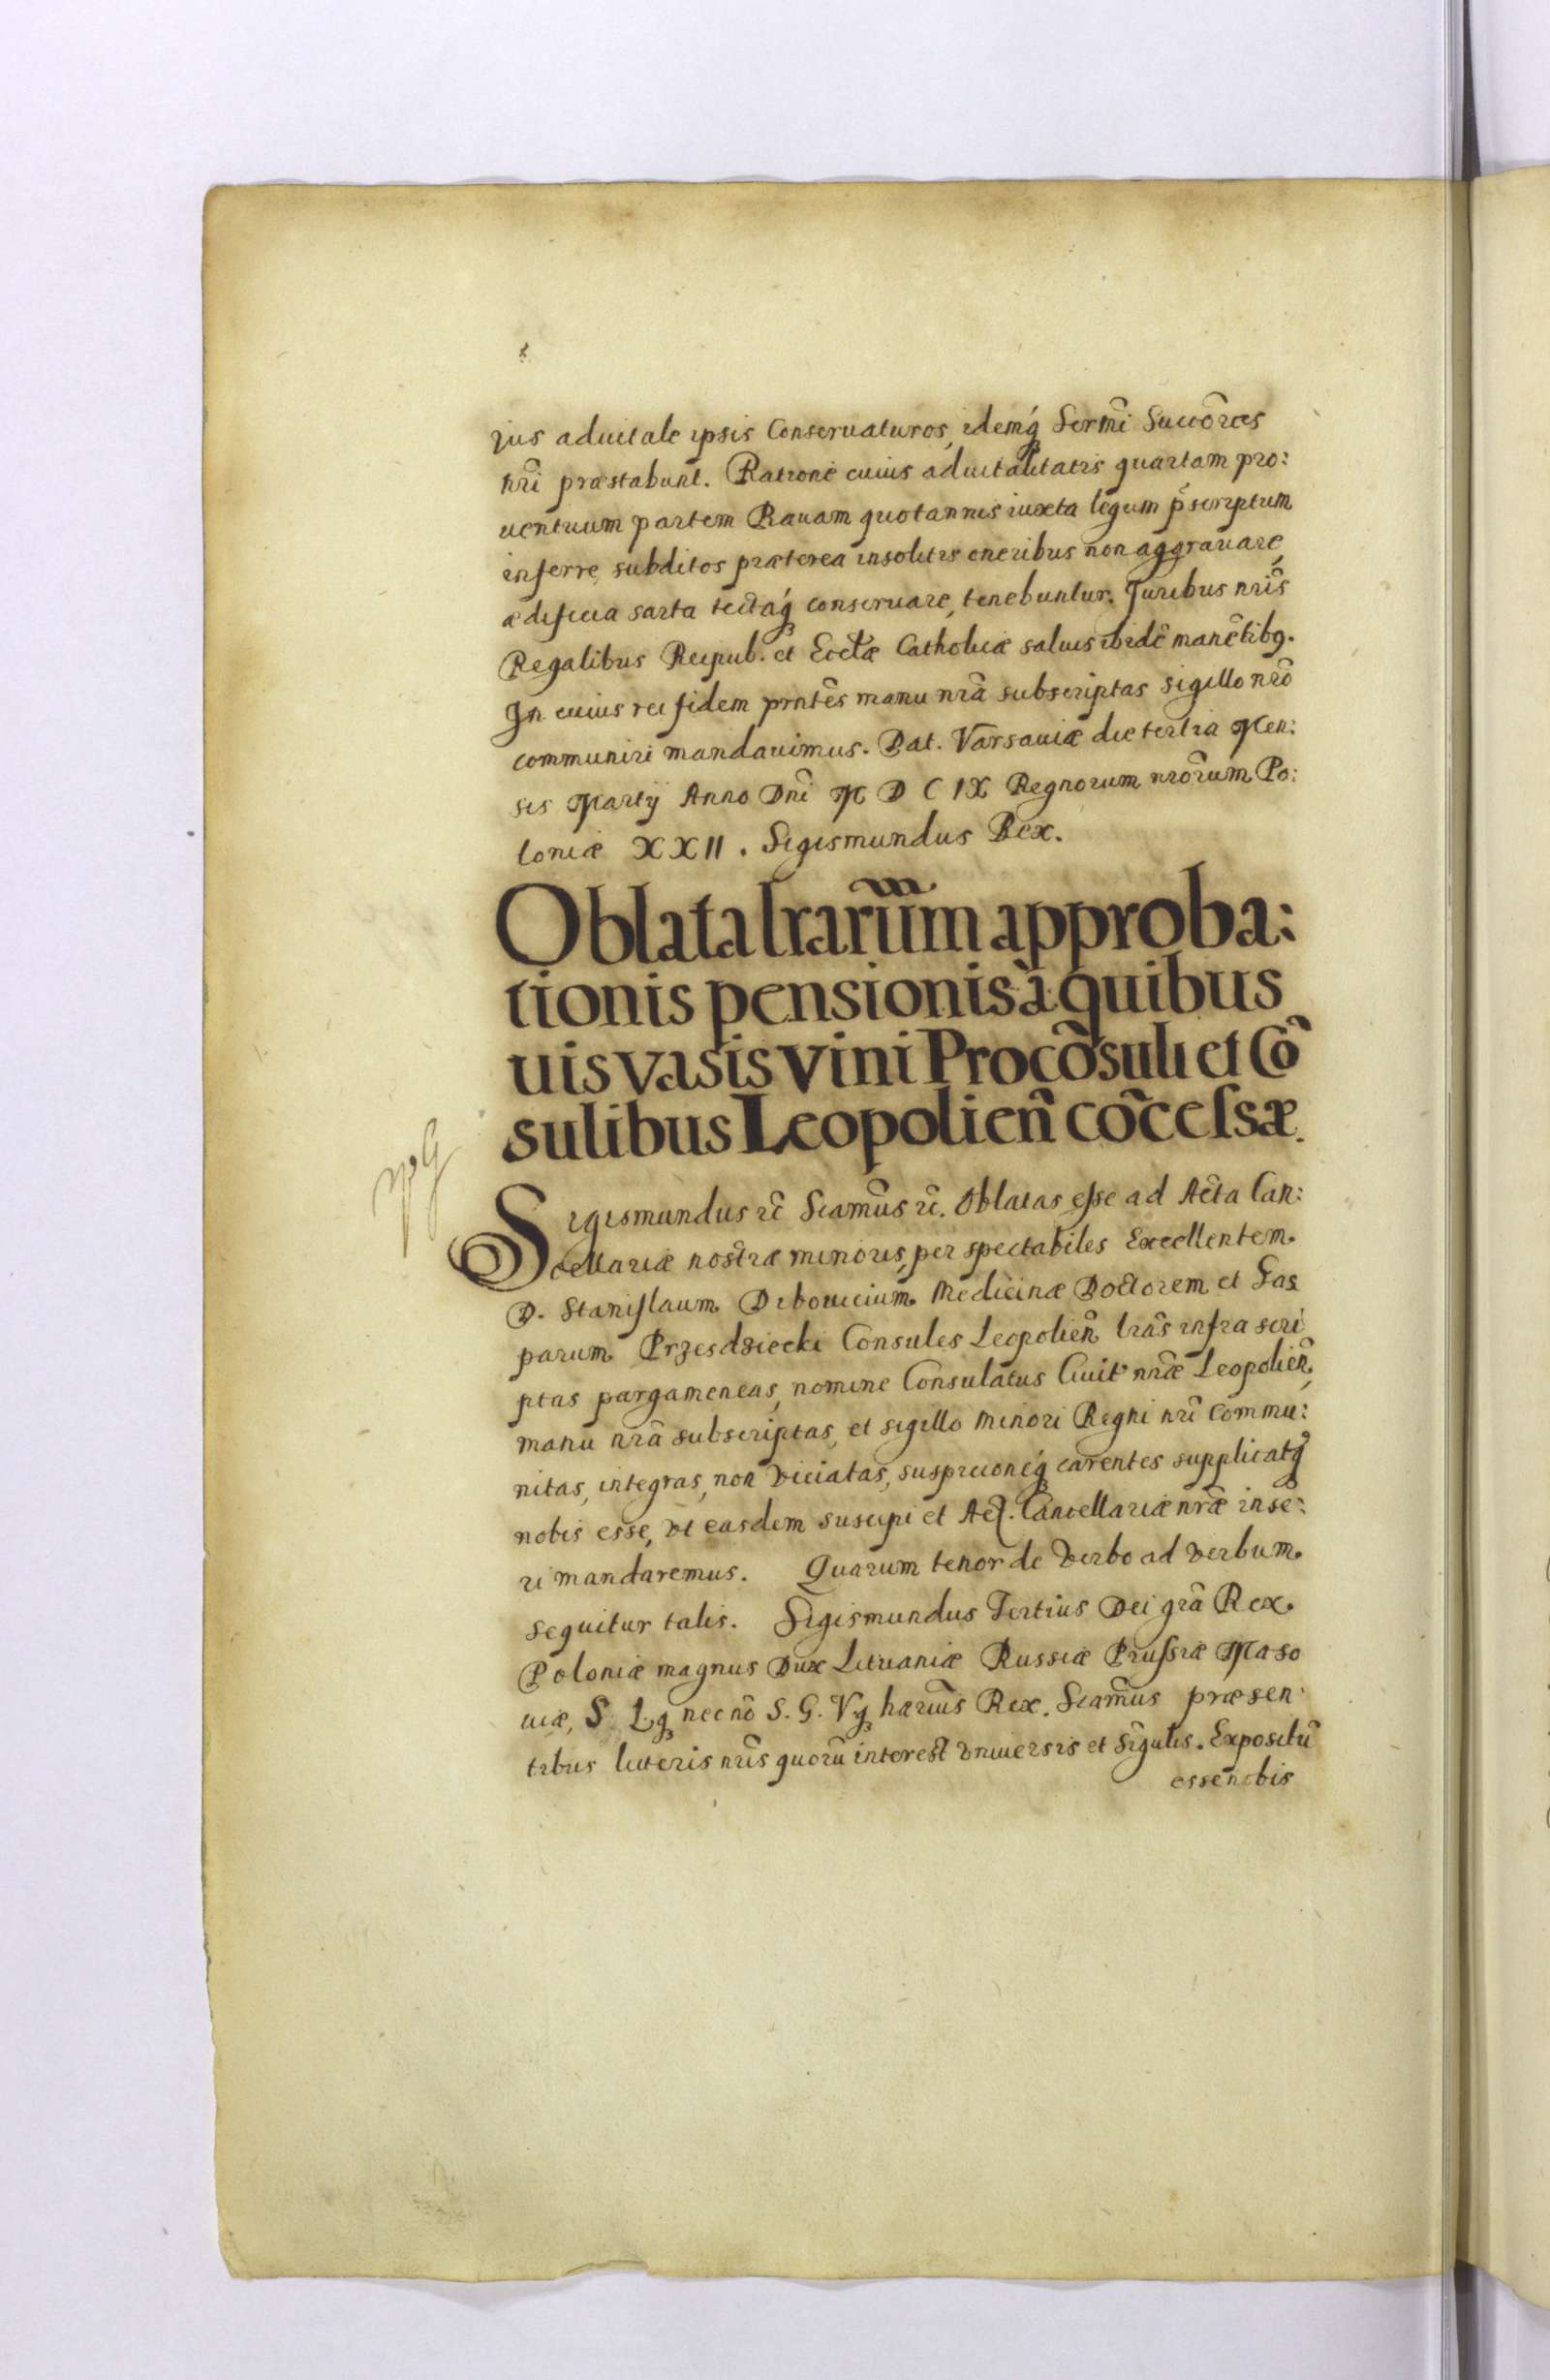 ius aduitale ipsis Conseruaturos, idemq́ Sermĩ Succõres
nrĩ præstabunt. Ratione cuius aduitalitatis quartam pro:
uentuum partem Rauam quotannis iuxta legum p̃scriptum
inferre, subditos præterea insolitis oneribus non aggrauare,
ædificia sarta tectaq́ conseruare, tenebuntur. Juribus nris̃
Regalibus Reipub. et Eccl̃æ Catholicæ saluis ibidẽ manẽtibꝰ.
In cuius rei fidem prntẽs manu nrã subscriptas sigillo nrõ
communiri mandauimus. Dat. Varsauiæ die tertia Men:
sis Martij Anno Dnĩ M D C IX Regnorum nrõrum Po:
loniæ XXII. Sigismundus Rex.
Oblata lrarũm approba:
tionis pensionis à quibus
uis vasis vini Procõsuli et Cõ
sulibus Leopolieñ cõcessæ.
Sigismundus rc̃ Sciamũs rc̃. Oblatas esse ad Acta Can:
cellariæ nostræ minoris, per spectabiles Excellentem
D. Stanislaum Dibouicium Medicinæ Doctorem et Gas
parum Przesdziecki Consules Leopolieñ lrãs infra scri
ptas pargameneas, nomine Consulatus Ciuit nrãe Leopolieñ,
manu nrã subscriptas, et sigillo minori Regni nrĩ commu:
nitas, integras, non viciatas, suspicioneq́ carentes supplicatq̃
nobis esse, vt easdem suscipi et Act. Cancellariæ nrãe insẽ:
ri mandaremus. Quarum tenor de verbo ad verbum
sequitur talis. Sigismundus Tertius Dei grã Rex
Poloniæ magnus Dux Lituaniæ Russiæ Prussiæ Maso
uiæ, S. Lꝗ necnõ S. G. Vꝗ hæriũs Rex. Sciamũs præsen
tibus literis nris̃ quorũ interest vniuersis et sĩgulis. Expositũ
esse nobis